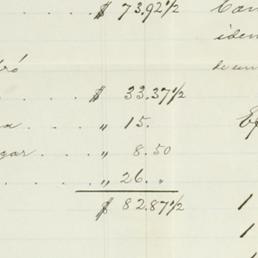 . . . . . $ 73.92½
Can
iden
bró
de un
. . . . $ 33.37½
a . . . . " 15.
Ef
gar . . . . " 8.50
. . . . " 26. "
$ 82.87½
1
1
1